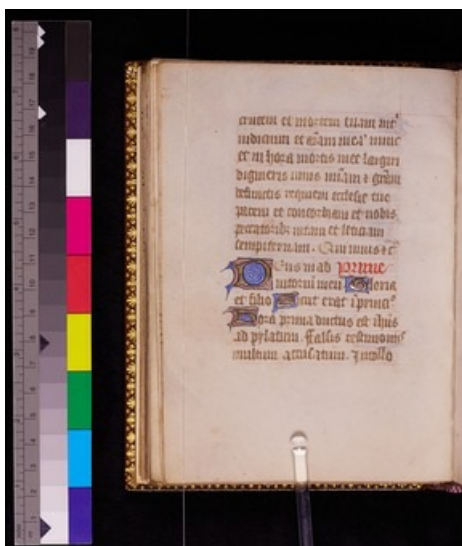 crucem et mortem tuam int̄
iudicium et aīam meā nunc
et in hora mortis mee largiri
digneris uiuis mīam ⁊ grām
defunctis requiem ecclesie tue
pacem et concordiam et nobis
peccatorib; uitam et leticiam
sempiternam. Qui uiuis ⁊ c̄
Deus in ad prime
iutoriū meū Gloria
et filio Sicut erat ī princi
Hora prima ductus est ihūs
ad pylatum. ffalsis testimoniis
multum accusatum. In collo